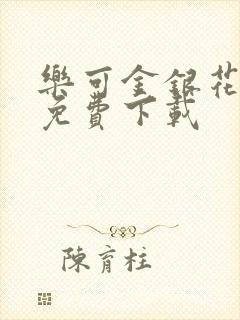 樂可金銀花
免費下載
陳育柱